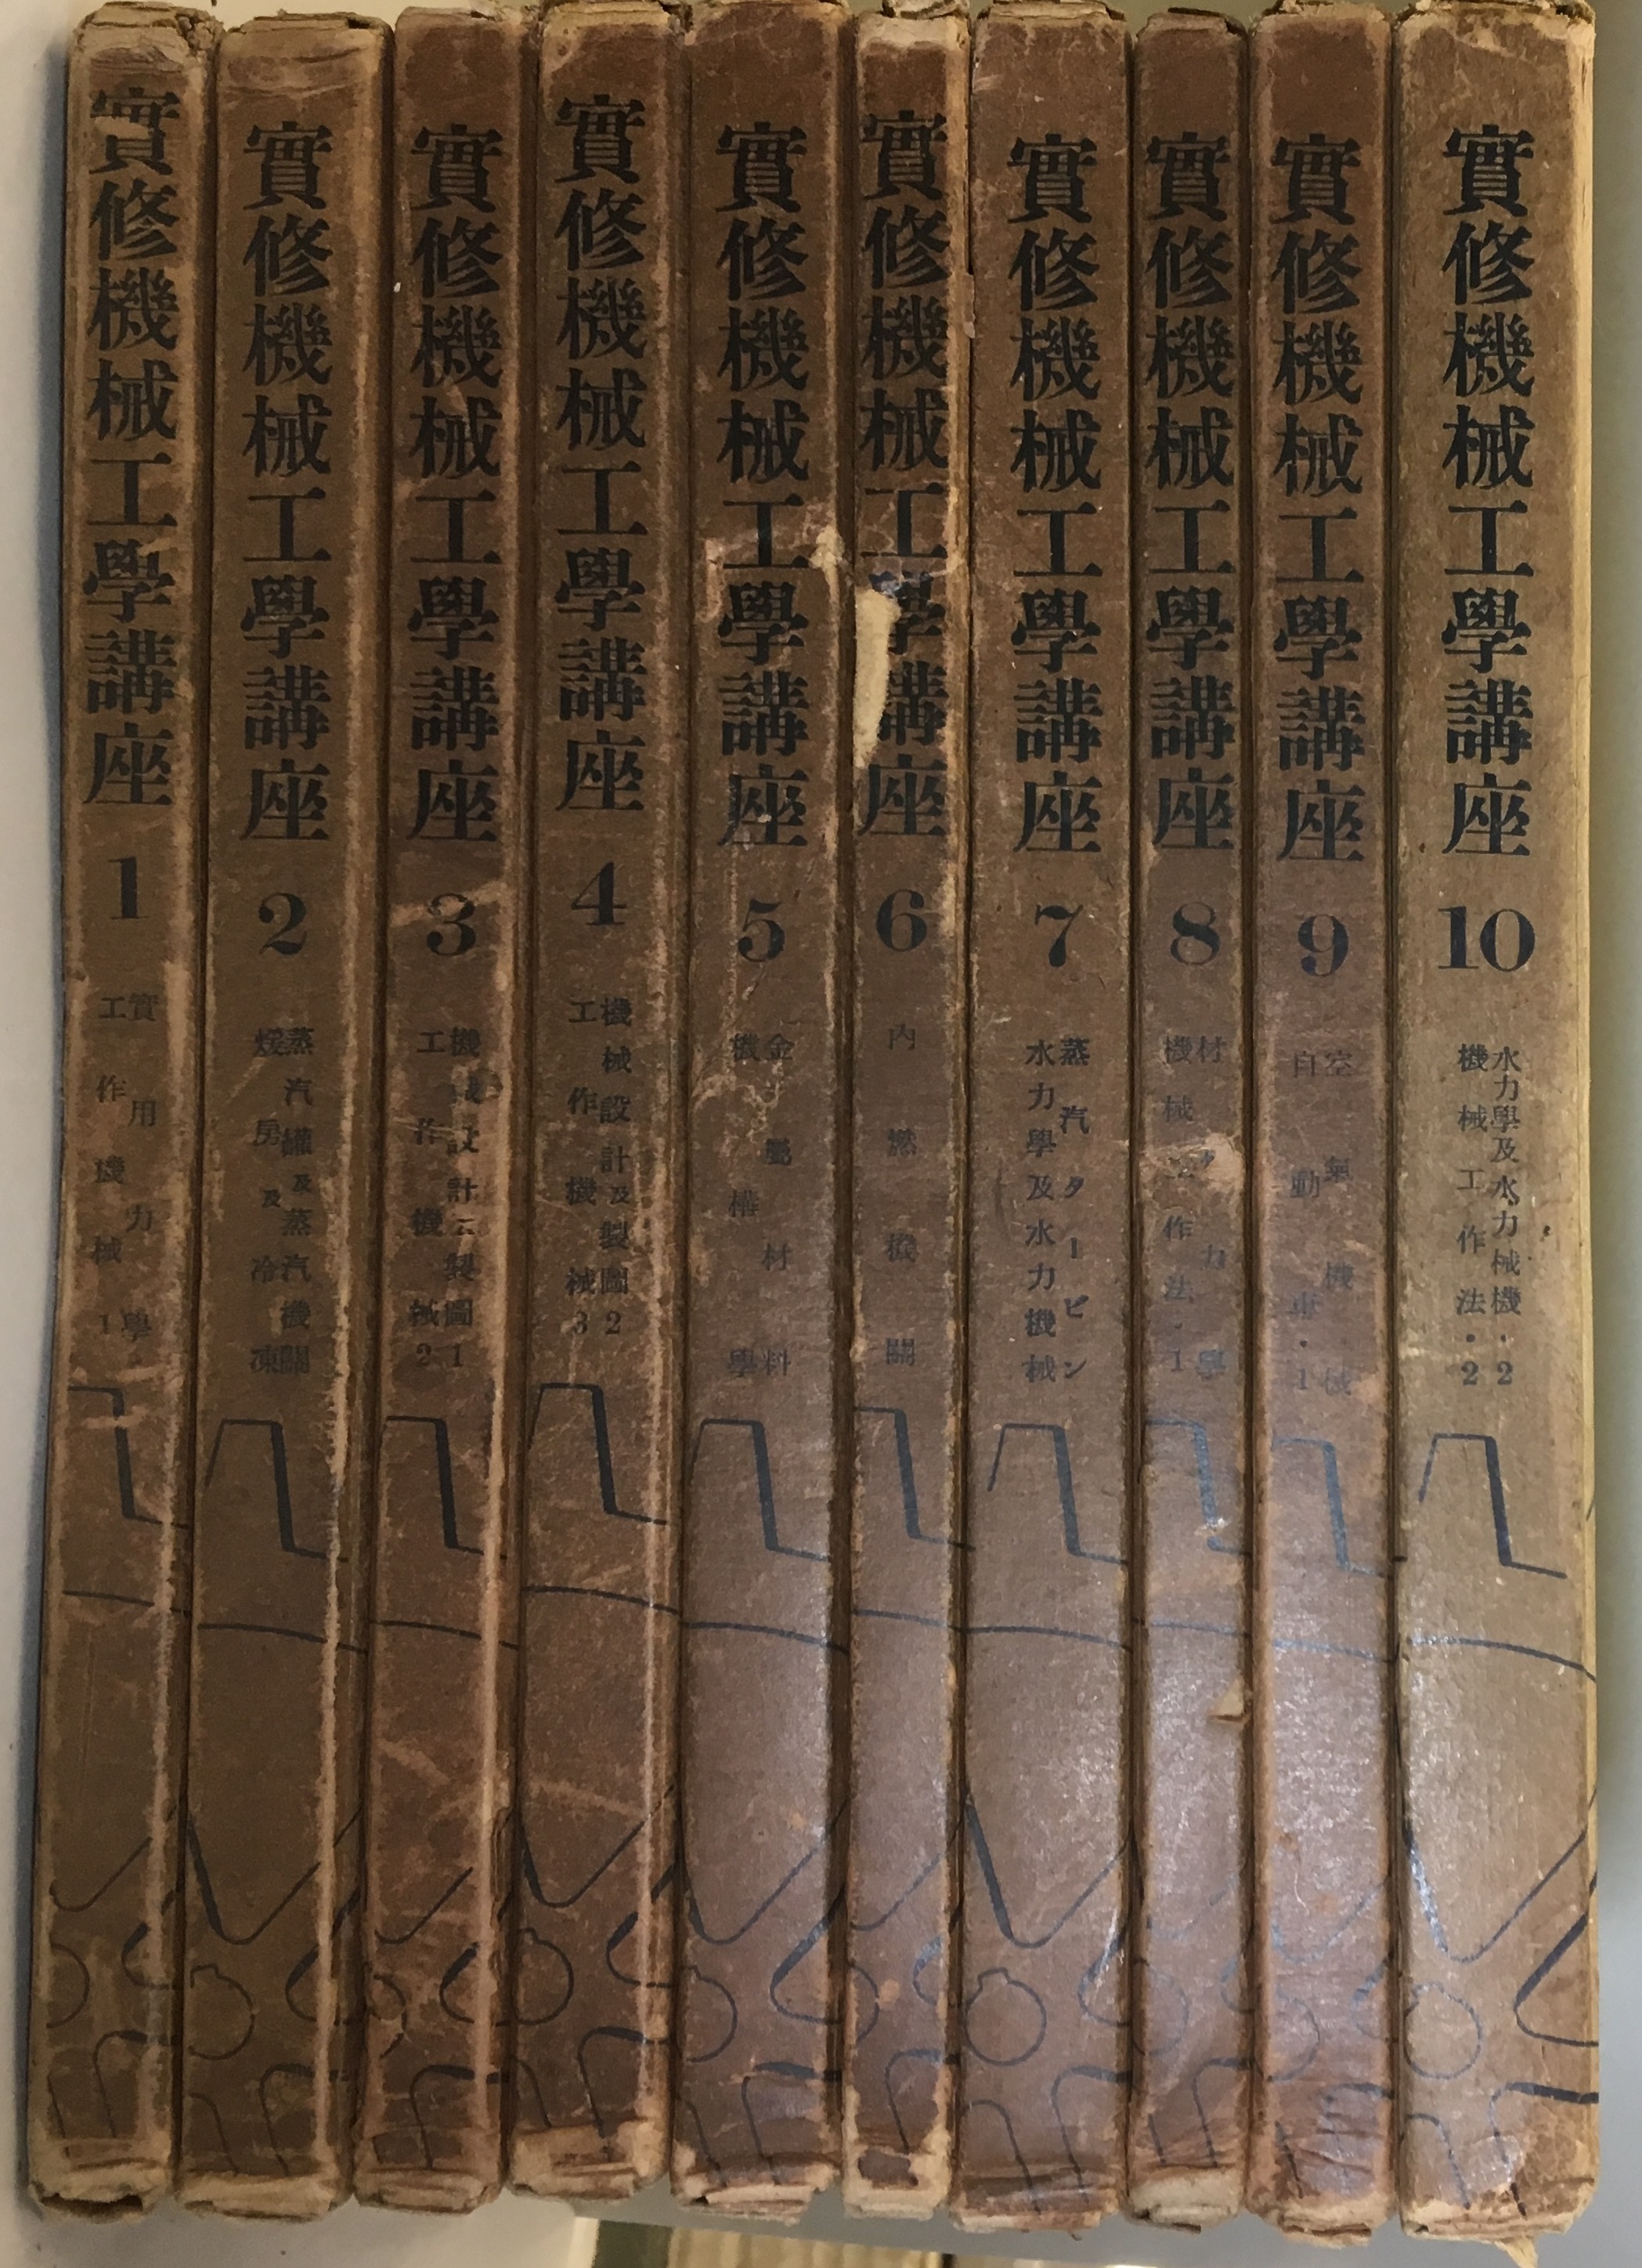 實修機械工學講座 1
實用力學
工作機械 1
實修機械工學講座 2
蒸汽罐及蒸汽機關
煖房及冷凍
實修機械工學講座 3
機械設計及製圖 1
工作機械 2
實修機械工學講座 4
機械設計及製圖 2
工作機械 3
實修機械工學講座 5
金屬材料
機構學
實修機械工學講座 6
內燃機關
實修機械工學講座 7
蒸汽タービン
水力學及水力機械
實修機械工學講座 8
材力學
機械工作法・1
實修機械工學講座 9
空氣機械
自動車・1
實修機械工學講座 10
水力學及水力械機・2
機械工作法・2